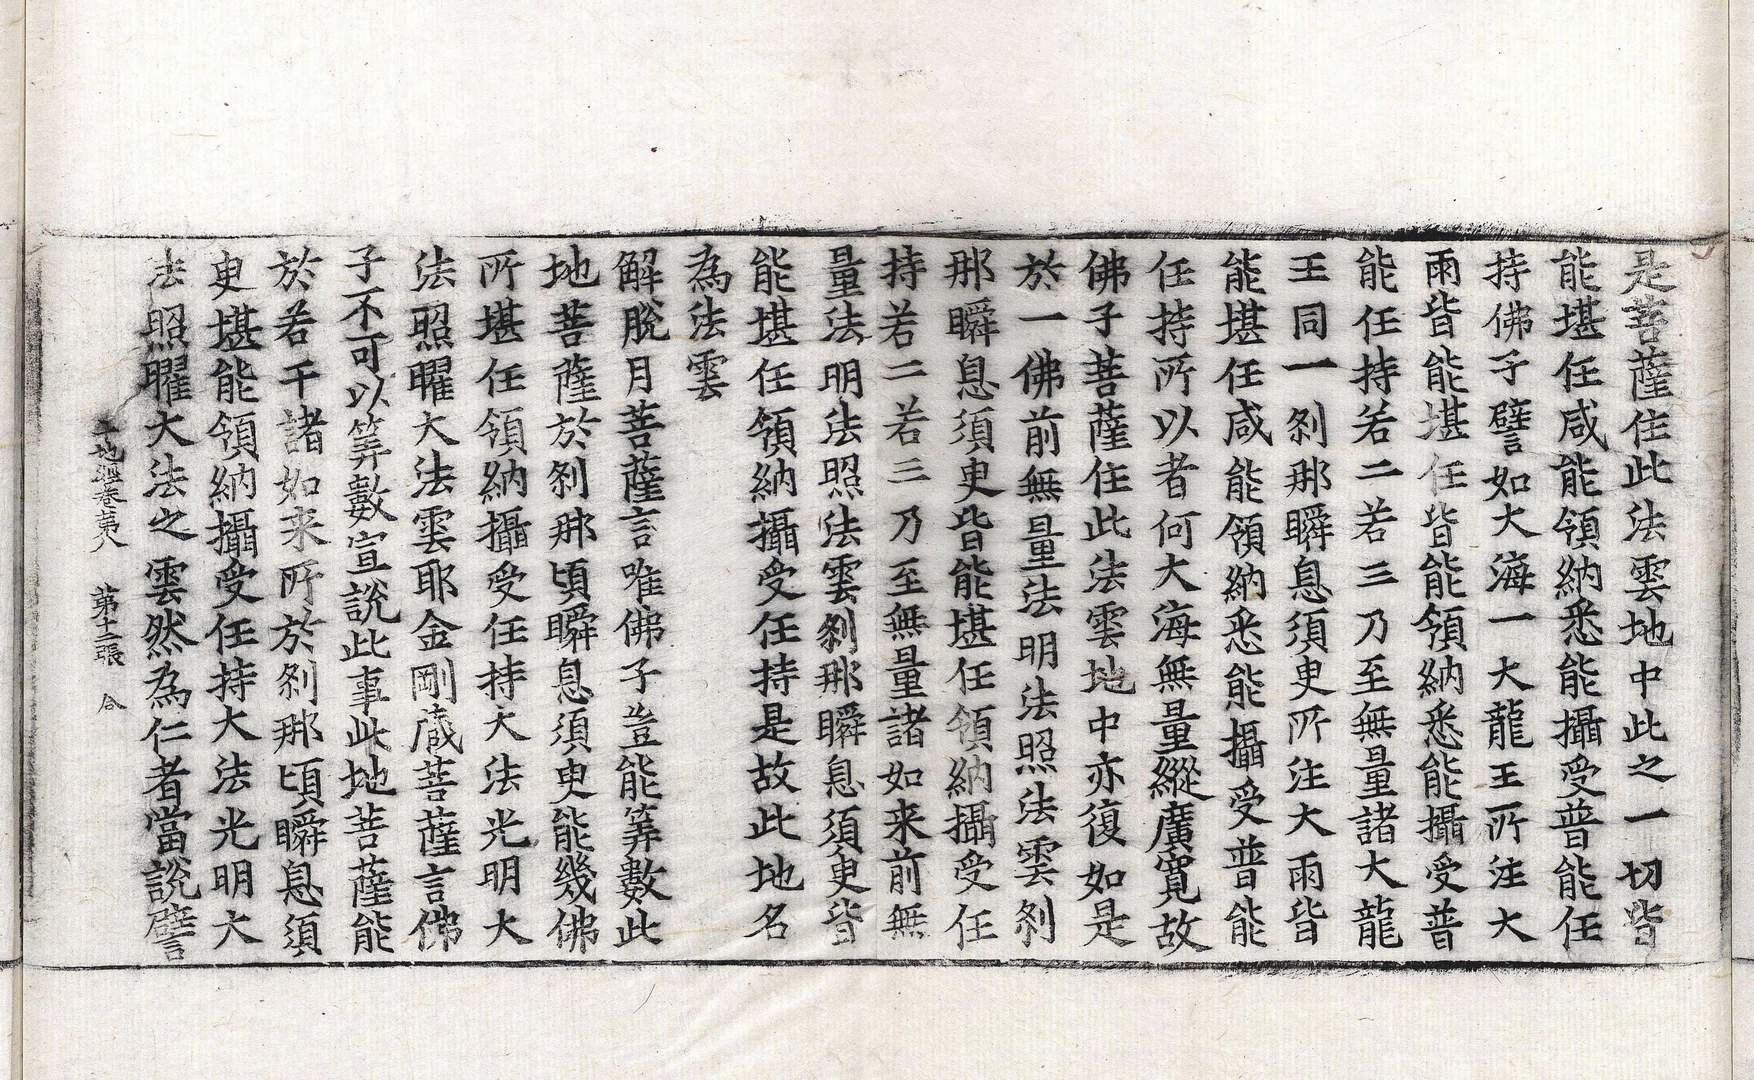 是菩薩住此法雲地中此之一切皆
能堪任咸能領納悉能攝受普能任
持佛子譬如大海一大龍王所注大
雨皆能堪任皆能領納悉能攝受普
能任持若二若三乃至無量諸大龍
王同一剎那瞬息須臾所注大雨皆
能堪任咸能領納悉能攝受普能
任持所以者何大海無量縱廣寬故
佛子菩薩住此法雲地中亦復如是
於一佛前無量法明法照法雲剎
那瞬息須臾皆能堪任領納攝受任
持若二若三乃至無量諸如来前無
量法明法照法雲剎那瞬息須臾皆
能堪任領納攝受任持是故此地名
為法雲
解脫月菩薩言唯佛子豈能筭數此
地菩薩於剎那頃瞬息須臾能幾佛
所堪任領納攝受任持大法光明大
法照曜大法雲耶金剛蔵菩薩言佛
子不可以筭數宣說此事此地菩薩能
於若干諸如来所於剎那頃瞬息須
臾堪能領納攝受任持大法光明大
法照曜大法之雲然為仁者當說譬
十地經卷苐八 第十二張 合